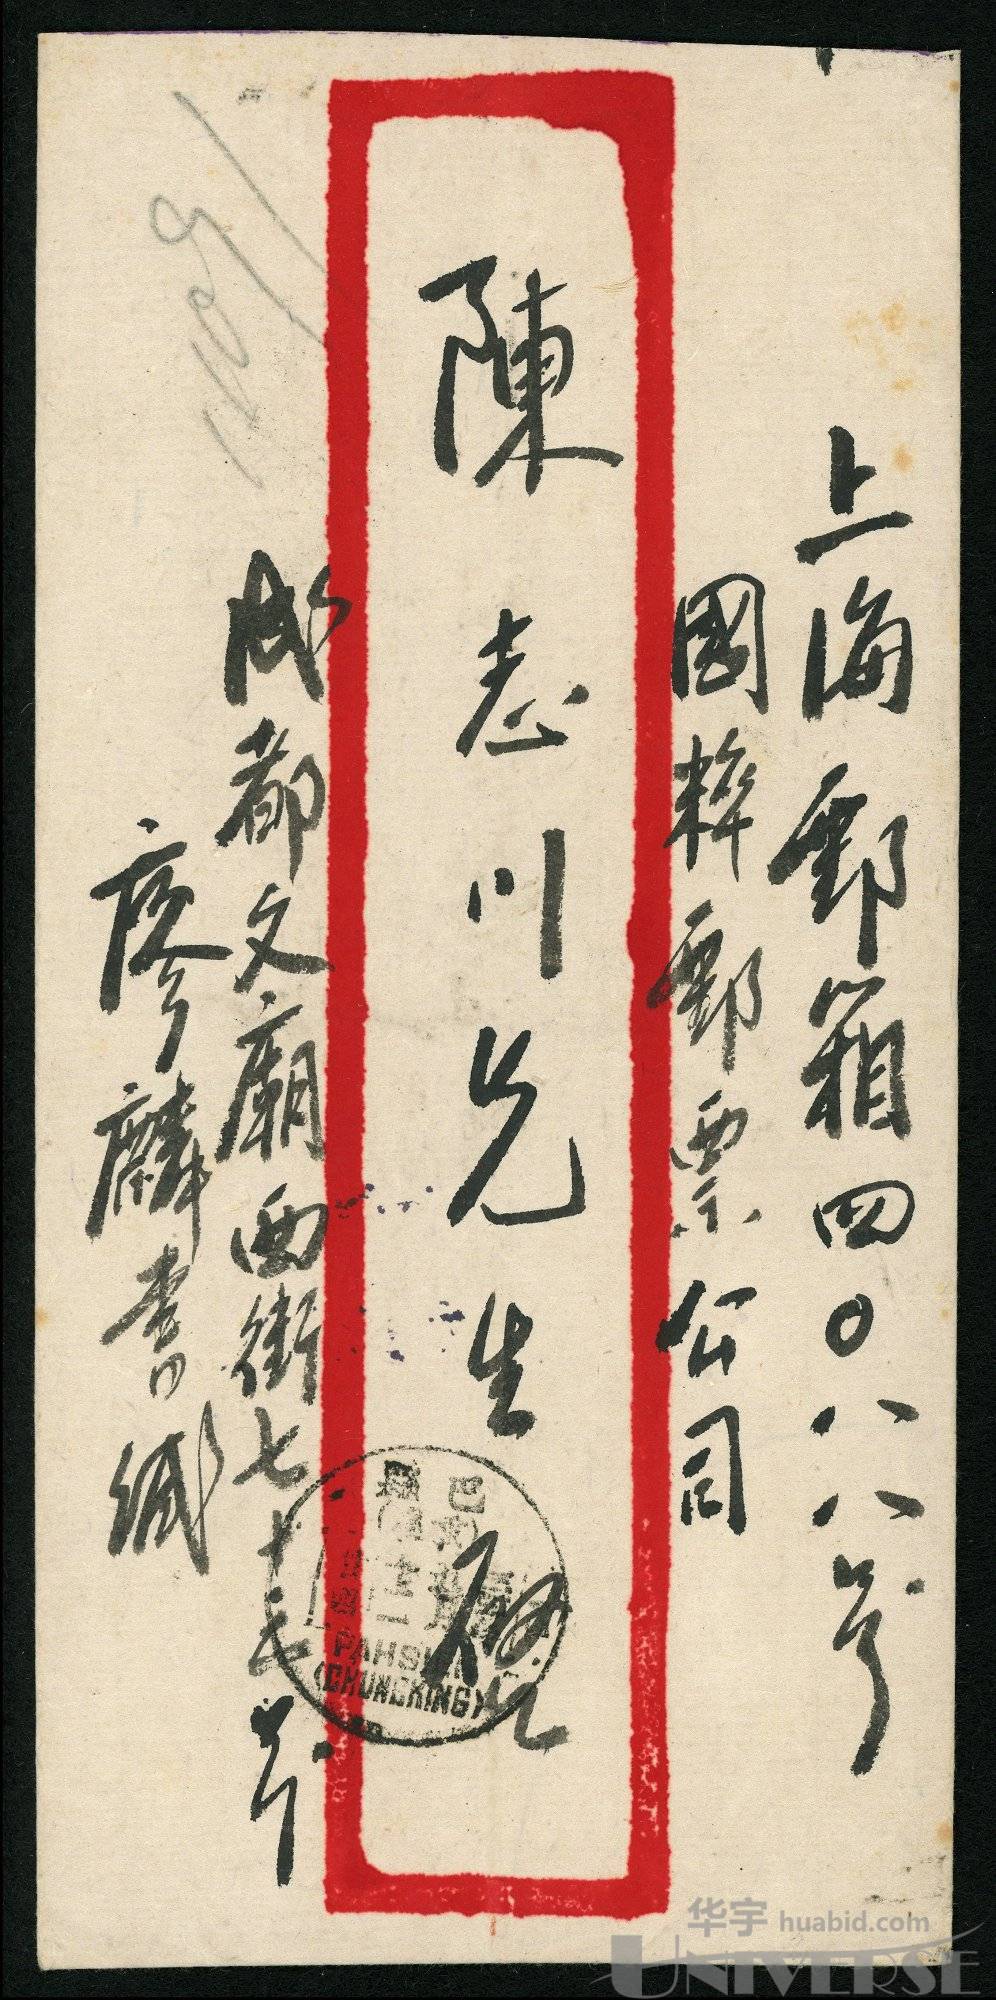 上海郵箱四〇八八号
國粹郵票公司
陳志川先生啟
成都文廟西街七十七号
廖麟書緘
1109
巴
PAHSIEN
(CHUNGKING)
华宇 huabid.com
UNIVERSE